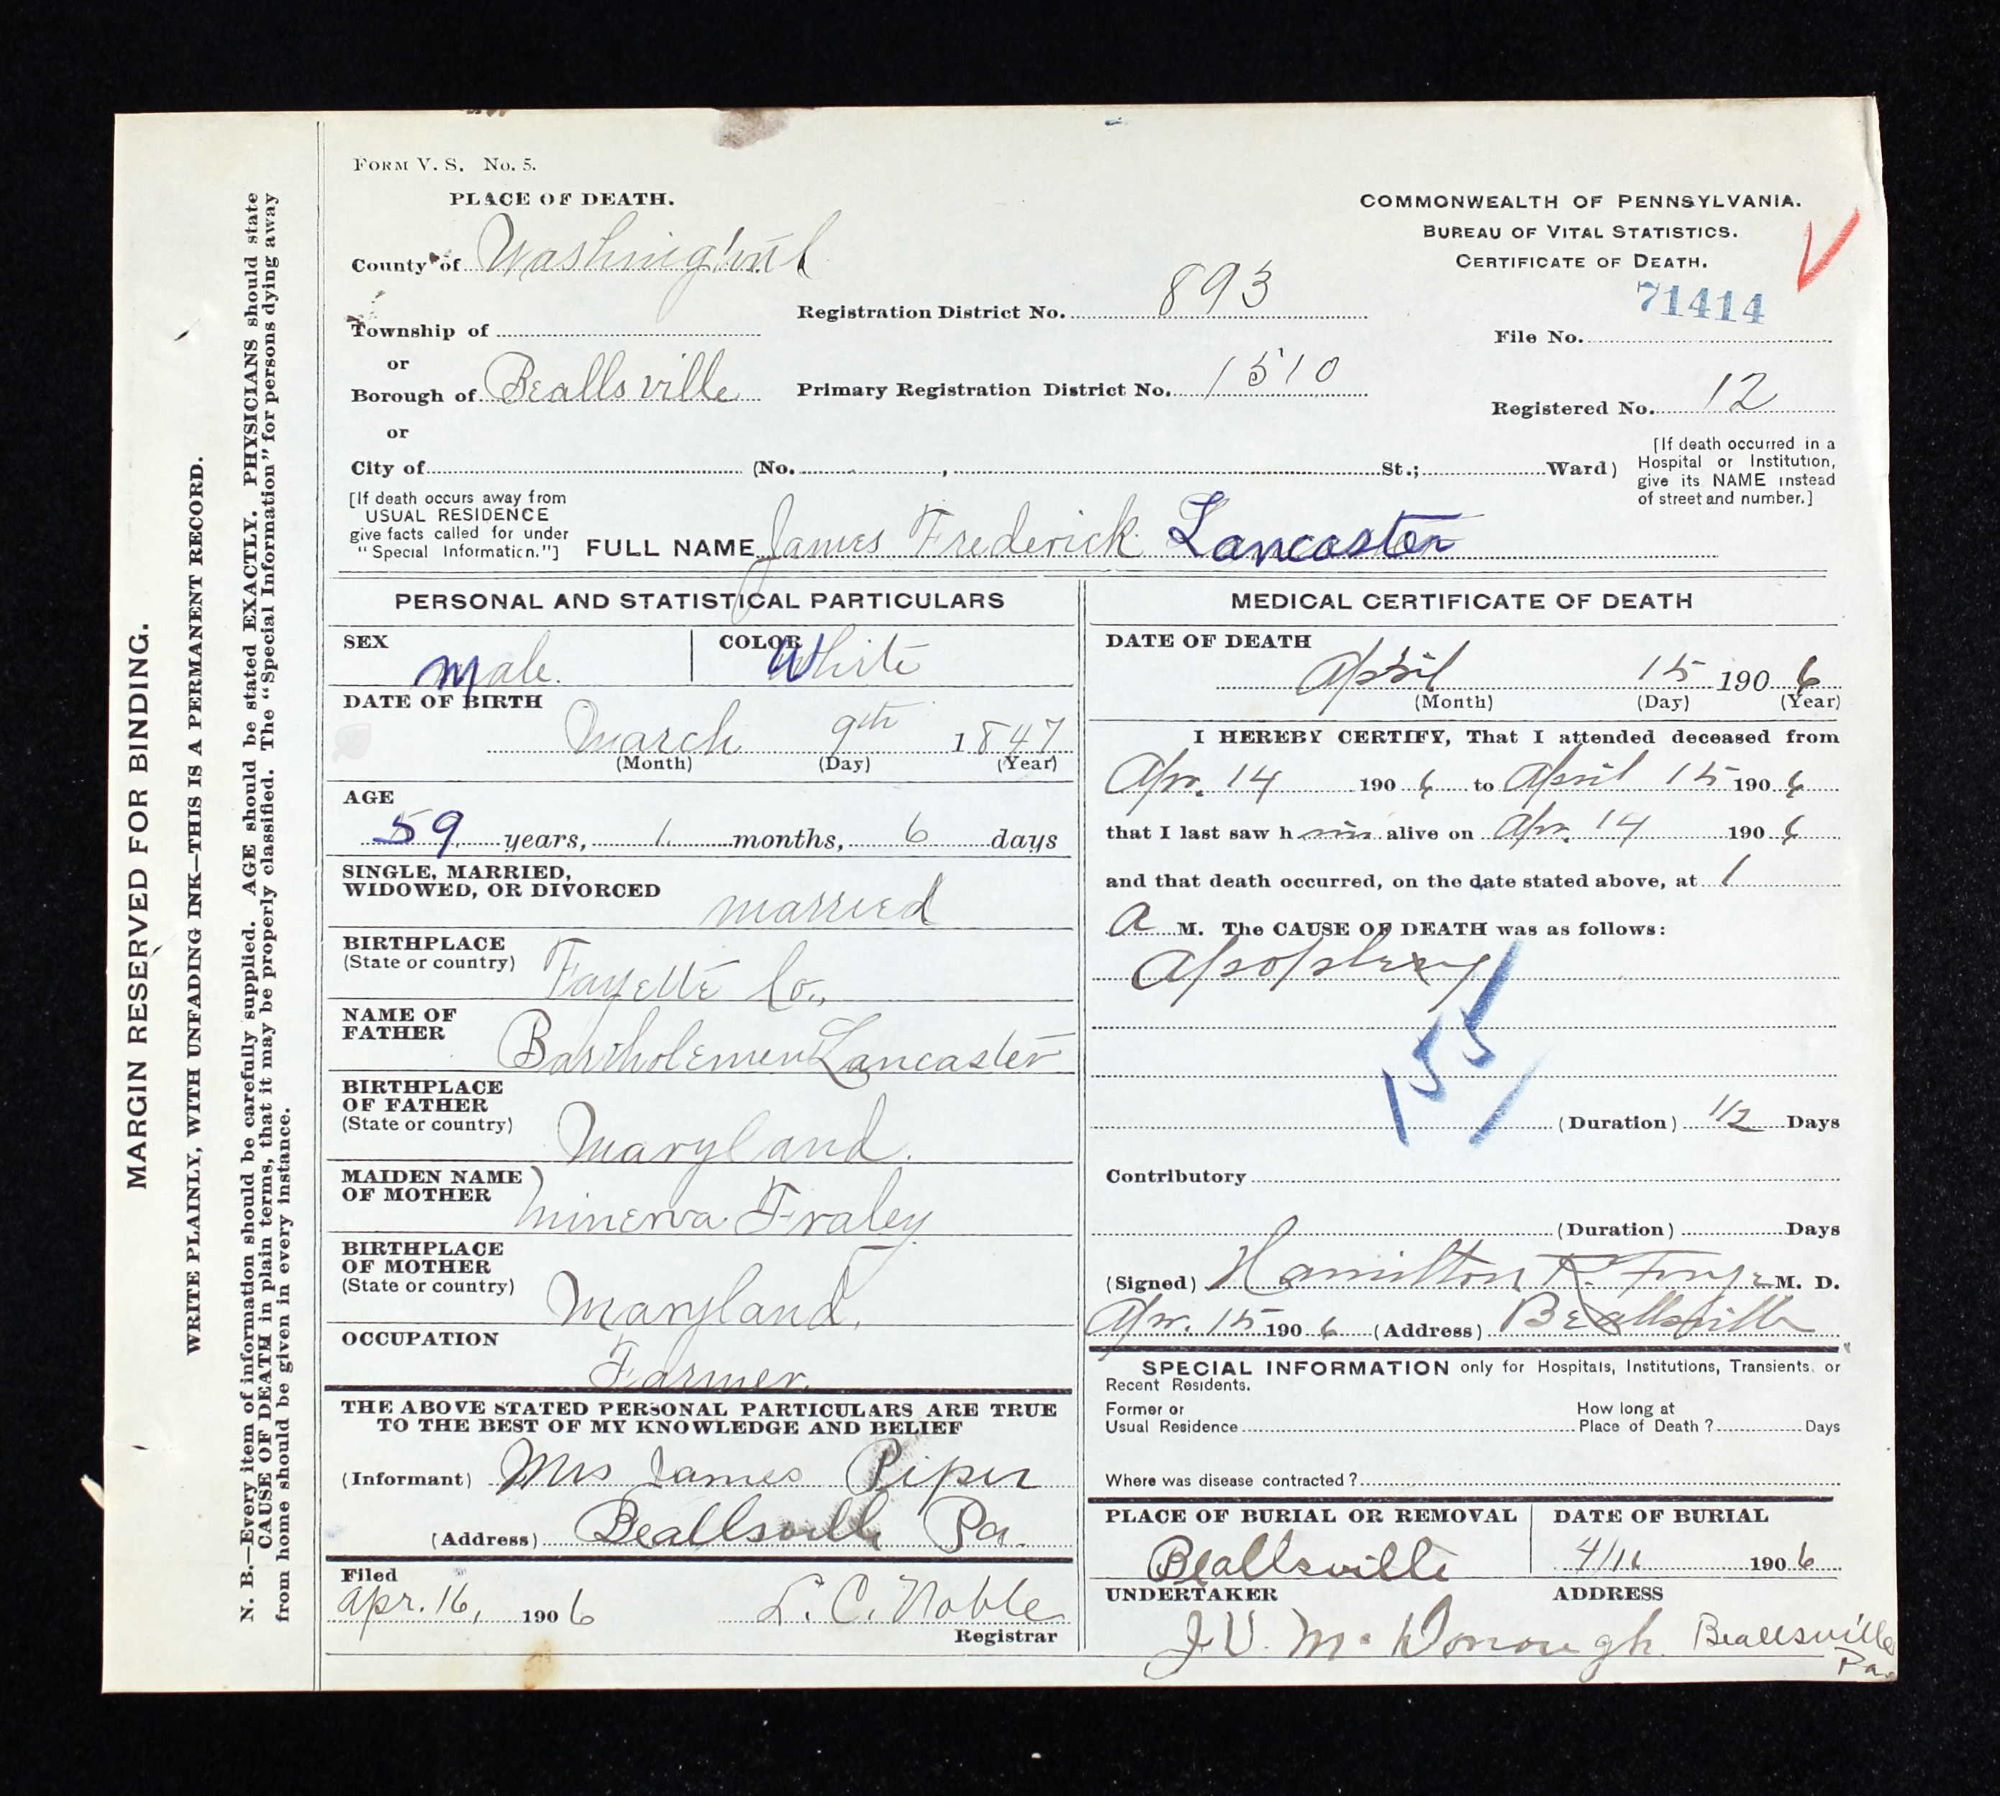 FORM V. S. No. 5.
PLACE OF DEATH.
County of Washington
Township of
or
Borough of Beallsville
or
City of (No. , St.; Ward)
Registration District No. 893
Primary Registration District No. 1510
COMMONWEALTH OF PENNSYLVANIA.
BUREAU OF VITAL STATISTICS.
CERTIFICATE OF DEATH.
71414
File No.
Registered No. 12
[If death occurred in a
Hospital or Institution,
give its NAME instead
of street and number.]
[If death occurs away from
USUAL RESIDENCE
give facts called for under
"Special Information."]
FULL NAME James Frederick Lancaster
PERSONAL AND STATISTICAL PARTICULARS
SEX Male.
COLOR White
DATE OF BIRTH
March 9th 1847
(Month) (Day) (Year)
AGE
59 years, 1 months, 6 days
SINGLE, MARRIED,
WIDOWED, OR DIVORCED married
BIRTHPLACE
(State or country) Fayette Co.,
NAME OF
FATHER Bartholemew Lancaster
BIRTHPLACE
OF FATHER
(State or country) Maryland.
MAIDEN NAME
OF MOTHER Minerva Fraley
BIRTHPLACE
OF MOTHER
(State or country) Maryland.
OCCUPATION
Farmer.
THE ABOVE STATED PERSONAL PARTICULARS ARE TRUE
TO THE BEST OF MY KNOWLEDGE AND BELIEF
(Informant) Mrs James Piper
(Address) Beallsville Pa.
Filed
Apr. 16, 1906 L. C. Noble
Registrar
MEDICAL CERTIFICATE OF DEATH
DATE OF DEATH
April 15 1906
(Month) (Day) (Year)
I HEREBY CERTIFY, That I attended deceased from
Apr. 14 1906 to April 15 1906
that I last saw h im alive on Apr. 14 1906
and that death occurred, on the date stated above, at 1
a M. The CAUSE OF DEATH was as follows:
Apoplexy
155
(Duration) 1/2 Days
Contributory
(Duration) Days
(Signed) Hamilton K. M. D.
Apr. 15 1906 (Address) Beallsville
SPECIAL INFORMATION only for Hospitals, Institutions, Transients, or
Recent Residents.
Former or
Usual Residence
How long at
Place of Death? Days
Where was disease contracted?
PLACE OF BURIAL OR REMOVAL
Beallsville
DATE OF BURIAL
4/16 1906
UNDERTAKER
J. V. McDonough
ADDRESS
Beallsville
Pa.
MARGIN RESERVED FOR BINDING.
WRITE PLAINLY, WITH UNFADING INK—THIS IS A PERMANENT RECORD.
N. B.—Every item of information should be carefully supplied. AGE should be stated EXACTLY. PHYSICIANS should state
CAUSE OF DEATH in plain terms, that it may be properly classified. The "Special Information" for persons dying away
from home should be given in every instance.